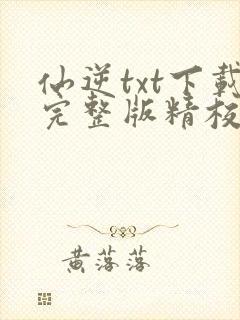 仙逆txt下载
完整版精校
黄落落